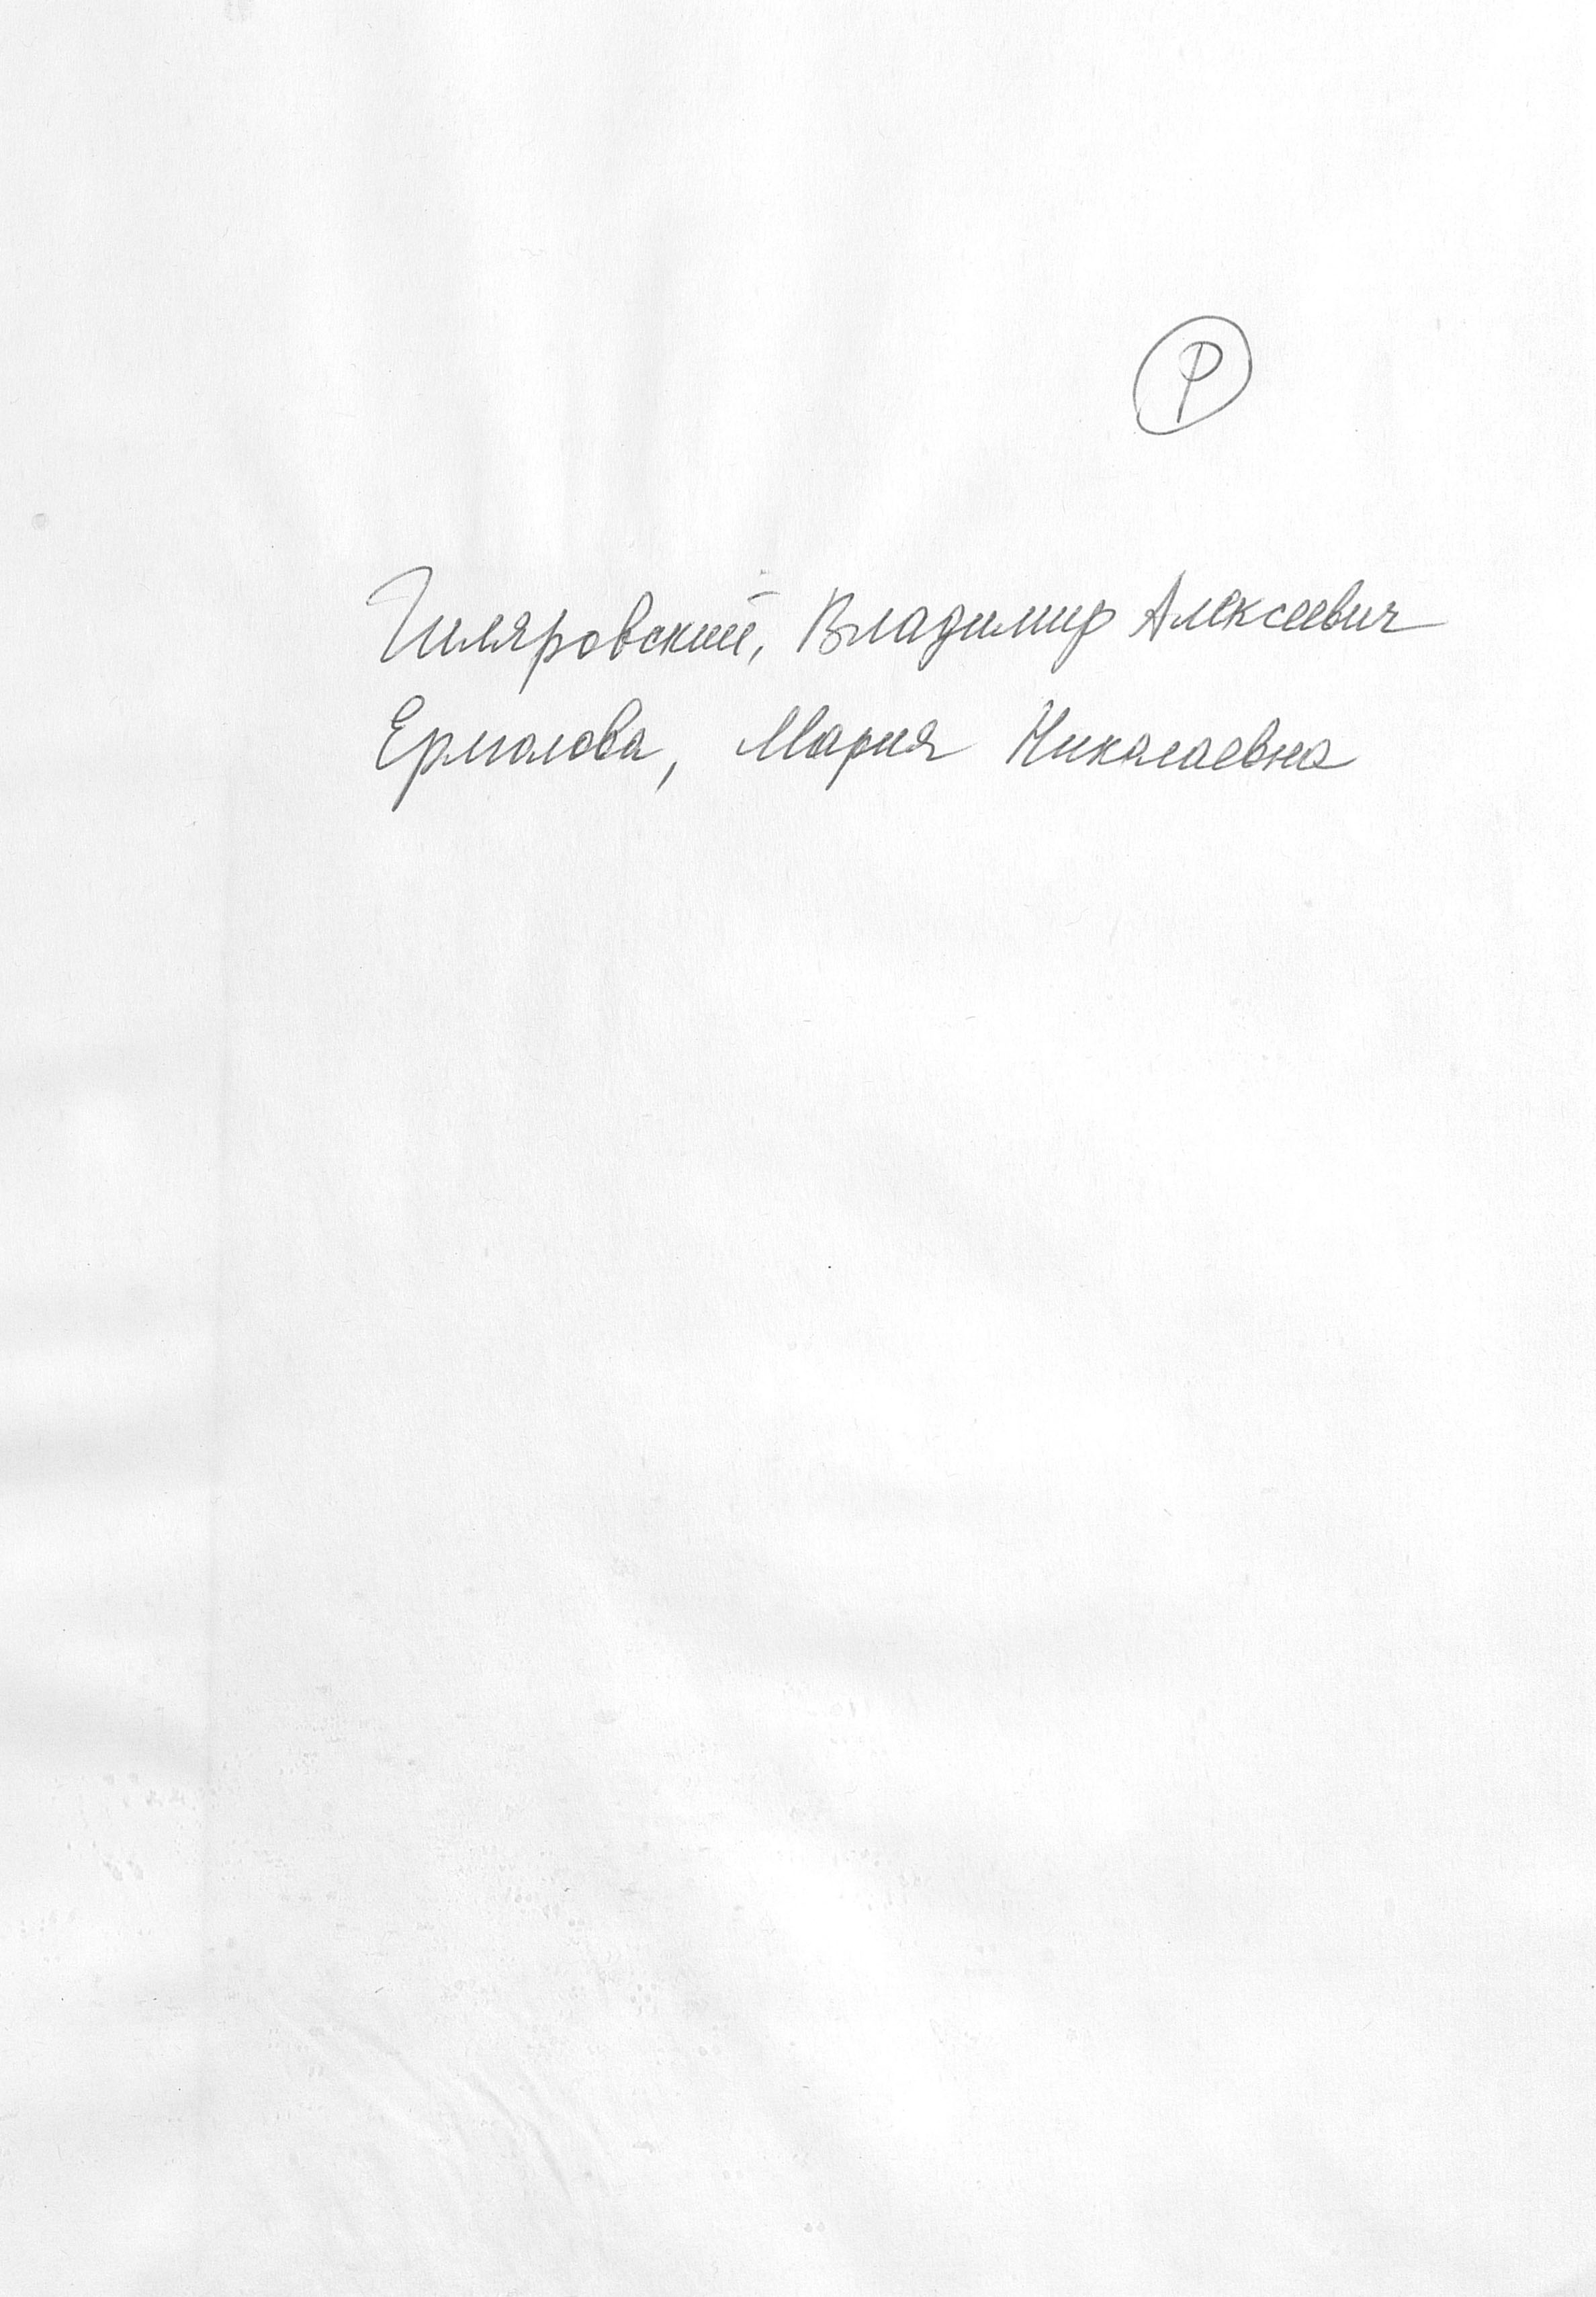 Р
Гиляровский, Владимир Алексеевич
Ермолова, Мария Николаевна